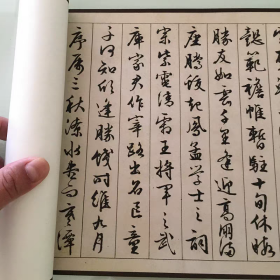 懿範襜帷暫駐十旬休暇
勝友如雲千里逢迎高朋滿
座騰蛟起鳳孟學士之詞
宗紫電清霜王將軍之武
庫家君作宰路出名區童
子何知躬逢勝餞時維九月
序屬三秋潦水盡而寒潭